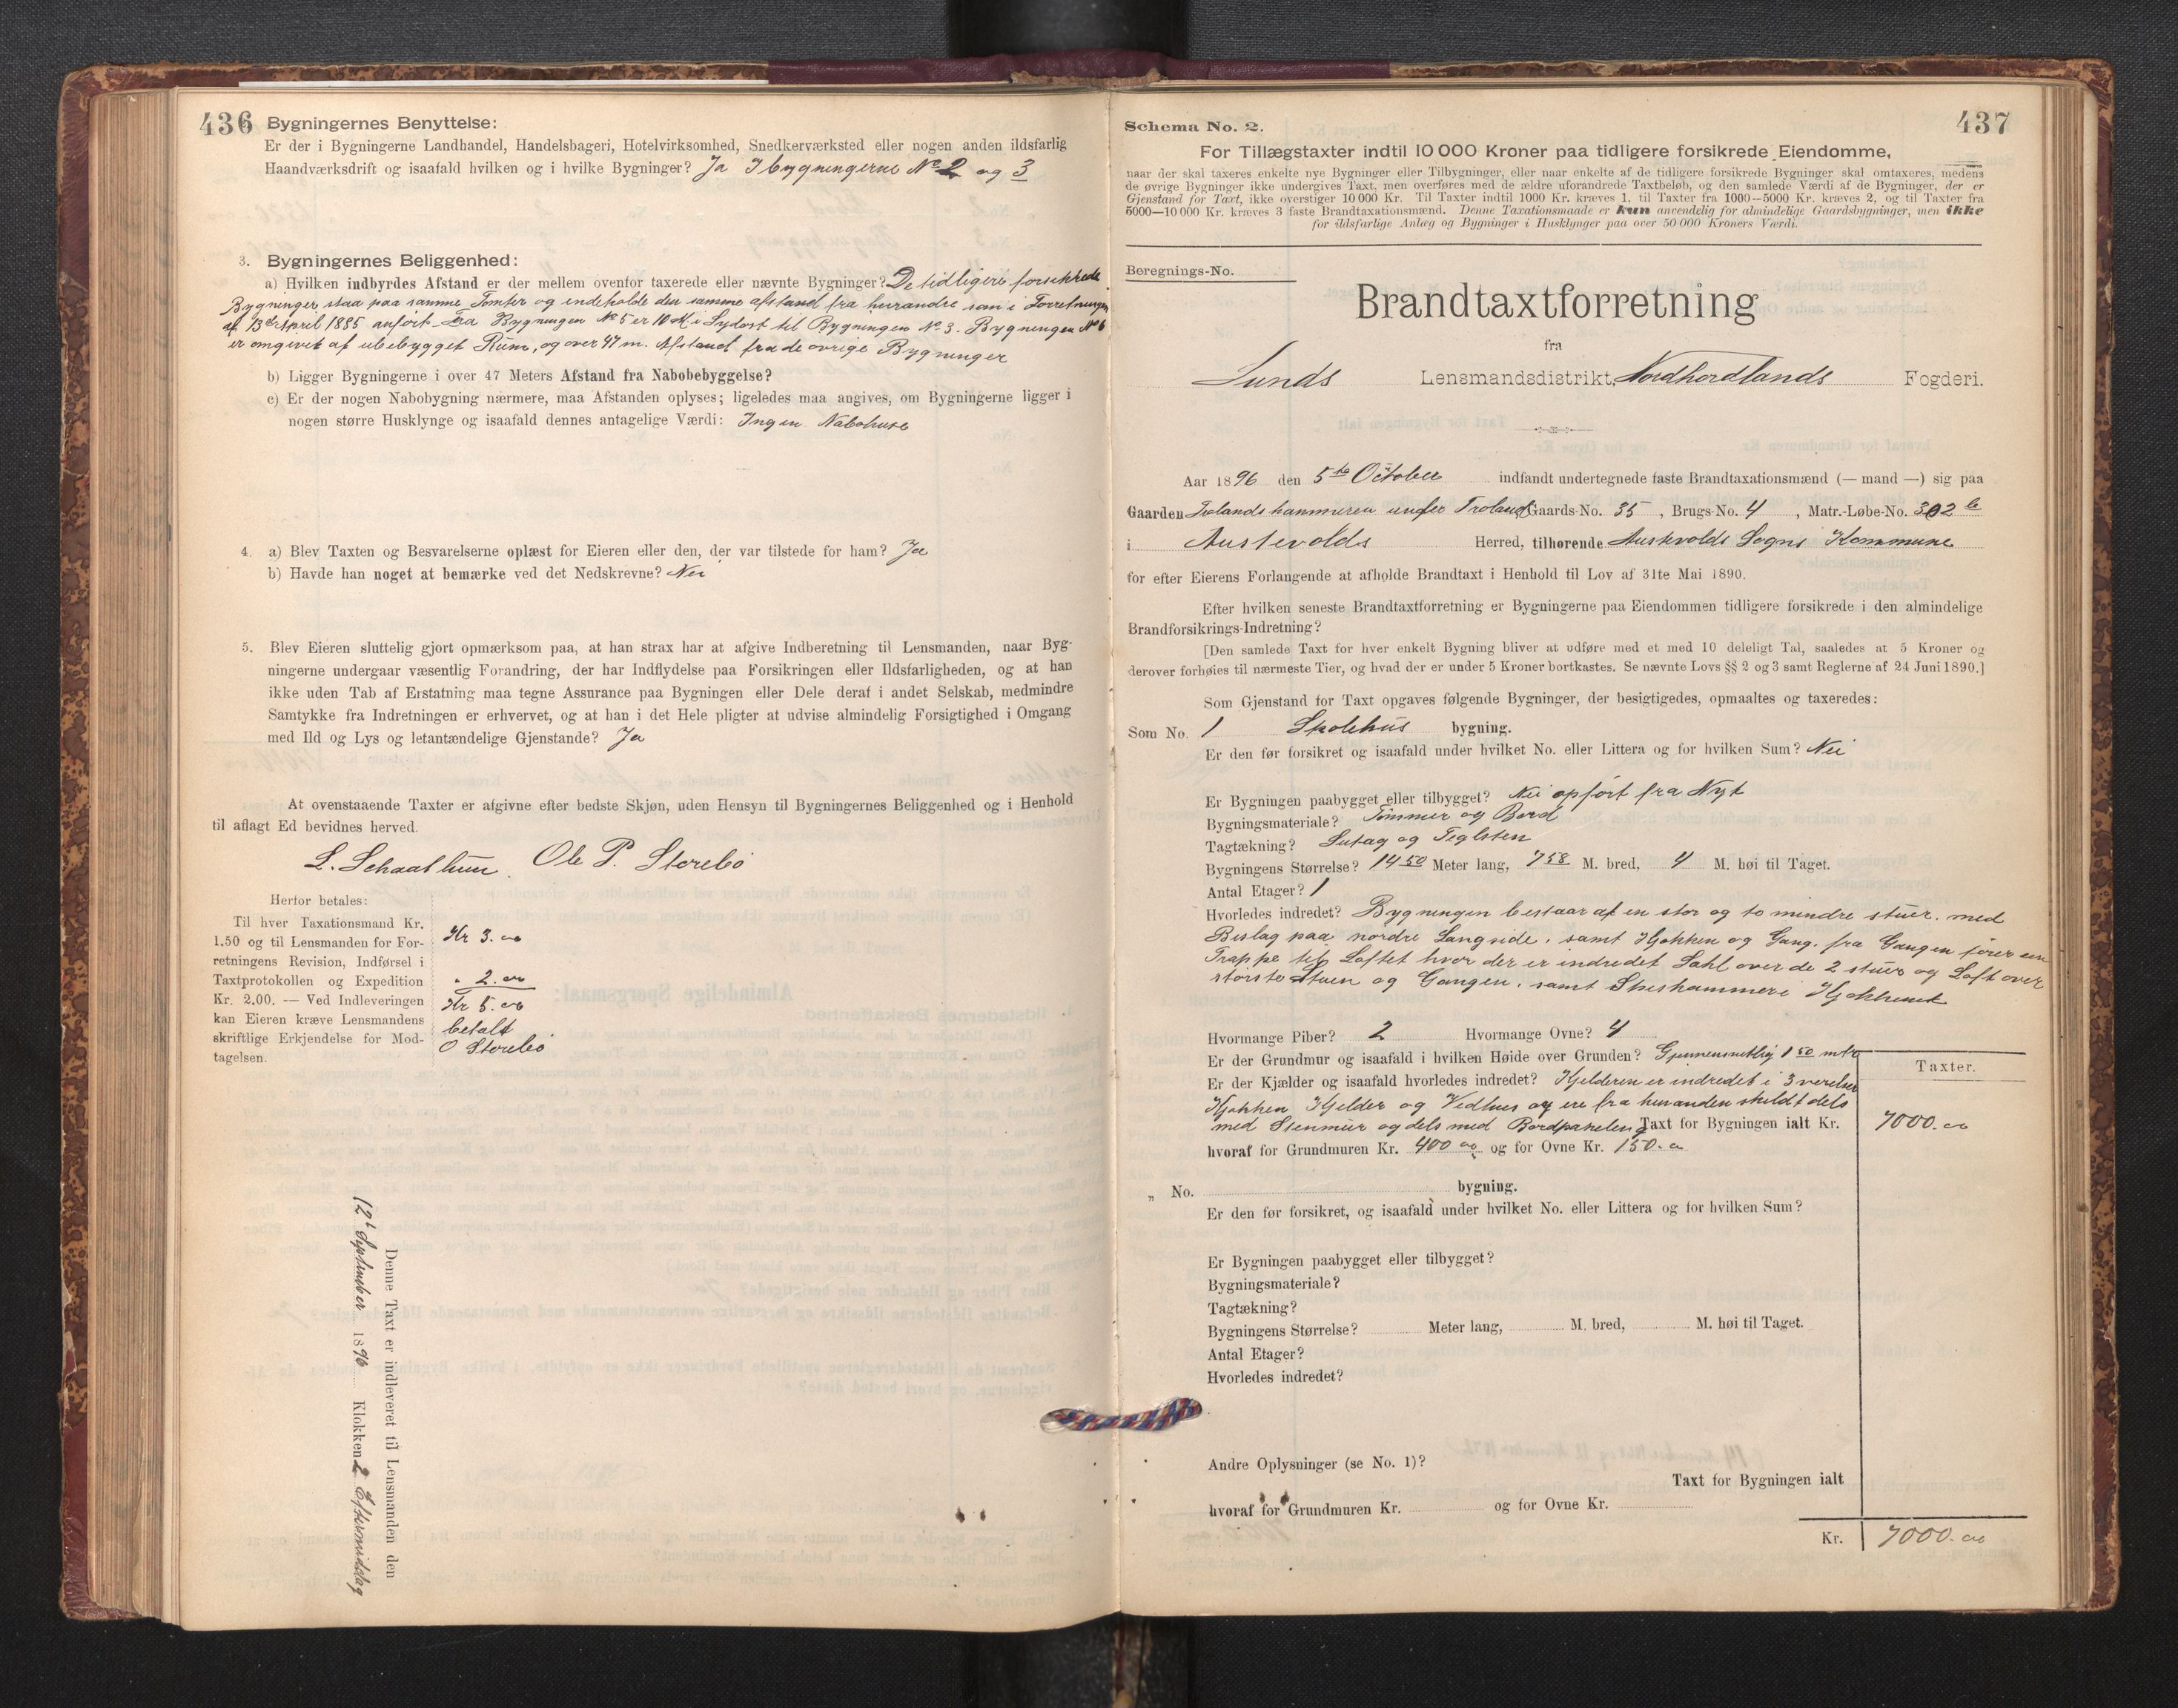 436 Bygningernes Benyttelse:
Er der i Bygningerne Landhandel, Handelsbageri, Hotelvirksomhed, Snedkerværksted eller nogen anden ildsfarlig
Haandværksdrift og isaafald hvilken og i hvilke Bygninger? Ja I bygningerne No 2 og 3
3. Bygningernes Beliggenhed:
a) Hvilken indbyrdes Afstand er der mellem ovenfor taxerede eller nævnte Bygninger? De tidligere forsikrede
Bygninger staa paa samme Tomter og indeholde den samme afstand fra hverandre som i Forretningen
af 13de April 1885 anført. Fra Bygningen No 5 er 10 M. i Sydost til Bygningen No 3. Bygningen No 6
er omgivet af ubebygget Rum, og over 47 m. Afstand fra de øvrige Bygninger
b) Ligger Bygningerne i over 47 Meters Afstand fra Nabobebyggelse?
c) Er der nogen Nabobygning nærmere, maa Afstanden oplyses; ligeledes maa angives, om Bygningerne ligger i
nogen større Husklynge og isaafald dennes antagelige Værdi: Ingen Nabohuse
4. a) Blev Taxten og Besvarelserne oplæst for Eieren eller den, der var tilstede for ham? Ja
b) Havde han noget at bemærke ved det Nedskrevne? Nei
5. Blev Eieren sluttelig gjort opmærksom paa, at han strax har at afgive Indberetning til Lensmanden, naar Byg-
ningerne undergaar væsentlig Forandring, der har Indflydelse paa Forsikringen eller Ildsfarligheden, og at han
ikke uden Tab af Erstatning maa tegne Assurance paa Bygningen eller Dele deraf i andet Selskab, medmindre
Samtykke fra Indretningen er erhvervet, og at han i det Hele pligter at udvise almindelig Forsigtighed i Omgang
med Ild og Lys og letantændelige Gjenstande? Ja
At ovenstaaende Taxter er afgivne efter bedste Skjøn, uden Hensyn til Bygningernes Beliggenhed og i Henhold
til aflagt Ed bevidnes herved.
L. Schaathun. Ole P. Storebø
Herfor betales:
Til hver Taxationsmand Kr.
1.50 og til Lensmanden for For- Kr 3.00
retningens Revision, Indførsel i
Taxtprotokollen og Expedition " 2.00
Kr. 2.00. — Ved Indleveringen Kr 5.00
kan Eieren kræve Lensmandens betalt
skriftlige Erkjendelse for Mod- O Storebø
tagelsen.
Denne Taxt er indleveret til Lensmanden den
12t September 1896 Klokken 2 Eftermiddag
437
Schema No. 2.
For Tillægstaxter indtil 10 000 Kroner paa tidligere forsikrede Eiendomme,
naar der skal taxeres enkelte nye Bygninger eller Tilbygninger, eller naar enkelte af de tidligere forsikrede Bygninger skal omtaxeres, medens
de øvrige Bygninger ikke undergives Taxt, men overføres med de ældre uforandrede Taxtbeløb, og den samlede Værdi af de Bygninger, der er
Gjenstand for Taxt, ikke overstiger 10 000 Kr. Til Taxter indtil 1000 Kr. kræves 1, til Taxter fra 1000—5000 Kr. kræves 2, og til Taxter fra
5000—10 000 Kr. kræves 3 faste Brandtaxationsmænd. Denne Taxationsmaade er kun anvendelig for almindelige Gaardsbygninger, men ikke
for ildsfarlige Anlæg og Bygninger i Husklynger paa over 50 000 Kroners Værdi.
Beregnings-No.
Brandtaxtforretning
fra
Sunds Lensmandsdistrikt, Nordhordlands Fogderi.
Aar 1896 den 5te October indfandt undertegnede faste Brandtaxationsmænd (— mand —) sig paa
Gaarden Trolandshammeren under Troland Gaards-No. 35, Brugs-No. 4, Matr.-Løbe-No. 302 b
i Austevolds Herred, tilhørende Austevolds Sogns Kommune
for efter Eierens Forlangende at afholde Brandtaxt i Henhold til Lov af 31te Mai 1890.
Efter hvilken seneste Brandtaxtforretning er Bygningerne paa Eiendommen tidligere forsikrede i den almindelige
Brandforsikrings-Indretning?
[Den samlede Taxt for hver enkelt Bygning bliver at udføre med et med 10 deleligt Tal, saaledes at 5 Kroner og
derover forhøies til nærmeste Tier, og hvad der er under 5 Kroner bortkastes. Se nævnte Lovs §§ 2 og 3 samt Reglerne af 24 Juni 1890.]
Som Gjenstand for Taxt opgaves følgende Bygninger, der besigtigedes, opmaaltes og taxeredes:
Som No. 1 Skolehus bygning.
Er den før forsikret og isaafald under hvilket No. eller Littera og for hvilken Sum? Nei
Er Bygningen paabygget eller tilbygget? Nei opført fra Nyt
Bygningsmateriale? Tømmer og Bord
Tagtækning? Sutag og Teglsten
Bygningens Størrelse? 14 50 Meter lang, 7 58 M. bred, 4 M. høi til Taget.
Antal Etager? 1
Hvorledes indredet? Bygningen bestaar af en stor og to mindre stuer. med
Bislag paa nordre Langside, samt Kjøkken og Gang. fra Gangen fører een
Trappe til Loftet hvor der er indredet Sahl over de 2 stuer og Loft over
største Stuen og Gangen, samt Kjøkkenet
Hvormange Piber? 2 Hvormange Ovne? 4
Er der Grundmur og isaafald i hvilken Høide over Grunden? Gjennemsnitlig 1 50 mtr
Er der Kjælder og isaafald hvorledes indredet? Kjelderen er indredet i 3 værelser
Kjøkken Kjelder og Vedhus og ere fra hverandre skildt dels
med Stenmur og dels med Bordpaneling Taxt for Bygningen ialt Kr.
Taxter.
7000.00
hvoraf for Grundmuren Kr. 400 00 og for Ovne Kr. 150.00
„ No. bygning.
Er den før forsikret, og isaafald under hvilket No. eller Littera og for hvilken Sum?
Er Bygningen paabygget eller tilbygget?
Bygningsmateriale?
Tagtækning?
Bygningens Størrelse? Meter lang, M. bred, M. høi til Taget.
Antal Etager?
Hvorledes indredet?
Andre Oplysninger (se No. 1)?
Taxt for Bygningen ialt
hvoraf for Grundmuren Kr. og for Ovne Kr.
Kr. 7000.00